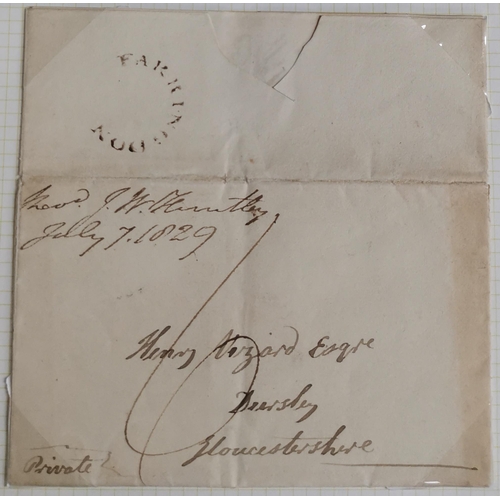 FARRINGDON
Revd J. W. Huntley
July 7. 1829
Henry Vizard Esqre
Dursley
Gloucestershire
Private